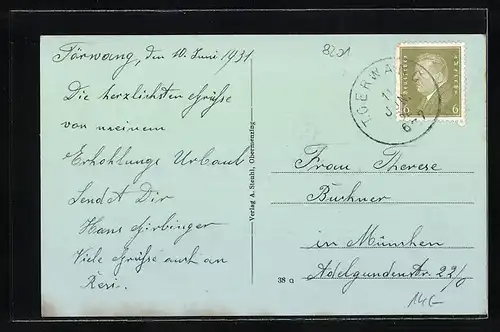 Törwang, den 10. Juni 1931.
Die herzlichsten Grüsse
von meinem
Erhohlungs Urlaub
Sendet Dir
Hans Girbinger
Viele Grüsse auch an
Resi.
Verlag A. Stenbl, Obermenzing
38 a
8201
TOERWA
6-7
6 6
Frau Therese
Buchner
in München
Adelgundenstr. 22/
14€